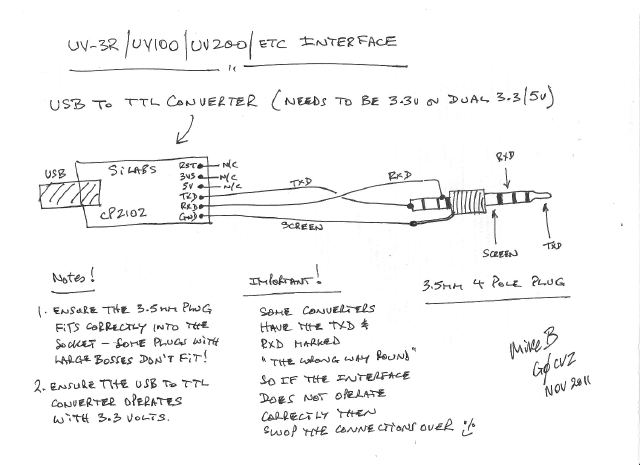 UV-3R/UV100/UV200/ETC INTERFACE
USB TO TTL CONVERTER (NEEDS TO BE 3.3V OR DUAL 3.3/5V)
USB
SiLABS
CP2102
RST N/C
3V3 N/C
5V N/C
TXD
RXD
GND
TXD
RXD
SCREEN
RXD
SCREEN
TXD
3.5MM 4 POLE PLUG
Notes!
1. ENSURE THE 3.5MM PLUG
FITS CORRECTLY INTO THE
SOCKET - SOME PLUGS WITH
LARGE BOSSES DON'T FIT!
2. ENSURE THE USB TO TTL
CONVERTER OPERATES
WITH 3.3 VOLTS.
IMPORTANT!
SOME CONVERTERS
HAVE THE TXD &
RXD MARKED
"THE WRONG WAY ROUND"
SO IF THE INTERFACE
DOES NOT OPERATE
CORRECTLY THEN
SWOP THE CONNECTIONS OVER
Mike B
GØCVZ
NOV 2011